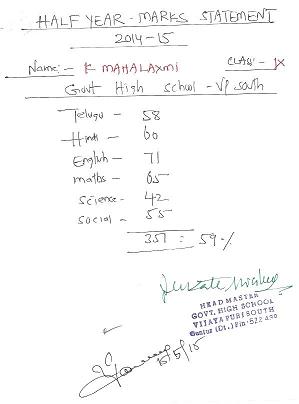 HALF YEAR - MARKS STATEMENT
2014-15
Name:- K MAHALAXMI CLASS - IX
Govt High school - VP south
Telugu - 58
Hindi - 60
English - 71
maths - 65
science - 42
social - 55
351 = 59%
HEAD MASTER
GOVT. HIGH SCHOOL
VIJAYA PURI SOUTH
Guntur (Dt.) Pin-522 439